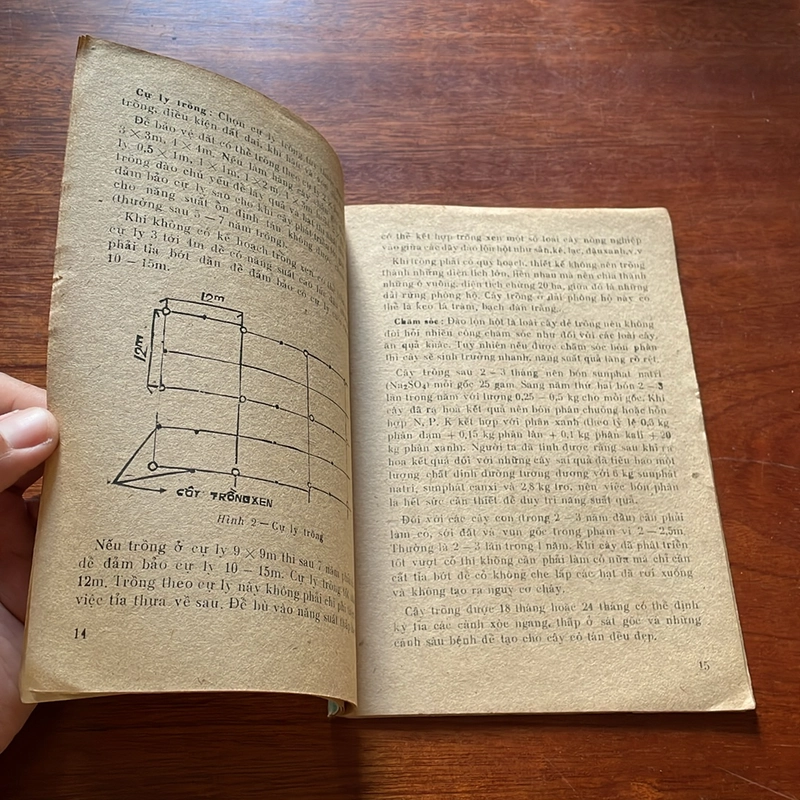 Cự ly trồng: Chọn cự ly trồng tùy
trồng, điều kiện đất đai, khí hậu
Để bảo vệ đất có thể trồng theo cự ly
3 × 3m, 4 × 4m. Nếu làm hàng
ly 0,5 × 1m, 1 × 1m, 1 × 2m
trồng đào chủ yếu để lấy quả và hạt
đảm bảo cự ly sao cho khi cây phát triển
cho năng suất ổn định tán không
(thường sau 5 – 7 năm trồng).
Khi không có kế hoạch trồng xen,
cự ly 3 tới 4m để có năng suất cao
phải tỉa bớt dần để đảm bảo có cự ly
10 – 15m.
12m
12m
CÂY TRỒNG XEN
Hình 2 – Cự ly trồng
Nếu trồng ở cự ly 9 × 9m thì sau 7 năm
để đảm bảo cự ly 10 – 15m. Cự ly trồng
12m. Trồng theo cự ly này không phải chi phí
việc tỉa thưa về sau. Để bù vào năng suất thấp
14
có thể kết hợp trồng xen một số loài cây nông nghiệp
vào giữa các dãy đào lộn hột như sắn, kê, lạc, đậu xanh, v.v
Khi trồng phải có quy hoạch, thiết kế không nên trồng
thành những diện tích lớn, liền nhau mà nên chia thành
những ô vuông, diện tích chừng 20 ha, giữa đó là những
dải rừng phòng hộ. Cây trồng ở dải phòng hộ này có
thể là keo lá tràm, bạch đàn trắng.
Chăm sóc: Đào lộn hột là loài cây dễ trồng nên không
đòi hỏi nhiều công chăm sóc như đối với các loài cây
ăn quả khác. Tuy nhiên nếu được chăm sóc bón phân
thì cây sẽ sinh trưởng nhanh, năng suất quả tăng rõ rệt.
Cây trồng sau 2 – 3 tháng nên bón sunphat natri
(Na₂SO₄) mỗi gốc 25 gam. Sang năm thứ hai bón 2 – 3
lần trong năm với lượng 0,25 – 0,5 kg cho mỗi gốc. Khi
cây đã ra hoa kết quả nên bón phân chuồng hoặc hỗn
hợp N, P, K kết hợp với phân xanh theo tỷ lệ 0,3 kg
phân đạm + 0,15 kg phân lân + 0,1 kg phân kali + 20
kg phân xanh. Người ta đã tính được rằng sau khi ra
hoa kết quả đối với những cây sai quả đã tiêu hao một
lượng chất dinh dưỡng tương đương với 6 kg sunphat
natri, sunphat canxi và 2,8 kg tro, nên việc bón phân
là hết sức cần thiết để duy trì năng suất quả.
– Đối với các cây con trong 2 – 3 năm đầu cần phải
làm cỏ, sới đất và vun gốc trong phạm vi 2 – 2,5m.
Thường là 2 – 3 lần trong 1 năm. Khi cây đã phát triển
tốt vượt cỏ thì không cần phải làm cỏ nữa mà chỉ cần
cắt tỉa bớt để cỏ không che lấp các hạt đã rơi xuống
và không tạo ra nguy cơ cháy.
Cây trồng được 18 tháng hoặc 24 tháng có thể định
kỳ tỉa các cành xòe ngang, thấp ở sát gốc và những
cành sâu bệnh để tạo cho cây có tán đều đẹp.
15